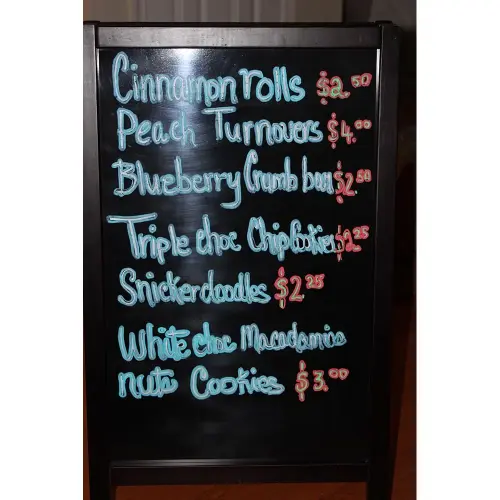 Cinnamon rolls $2.50
Peach Turnovers $4.00
Blueberry Crumb bars $2.50
Triple choc Chip Cookies $2.25
Snickerdoodles $2.25
White choc Macadamia
nuts Cookies $3.00